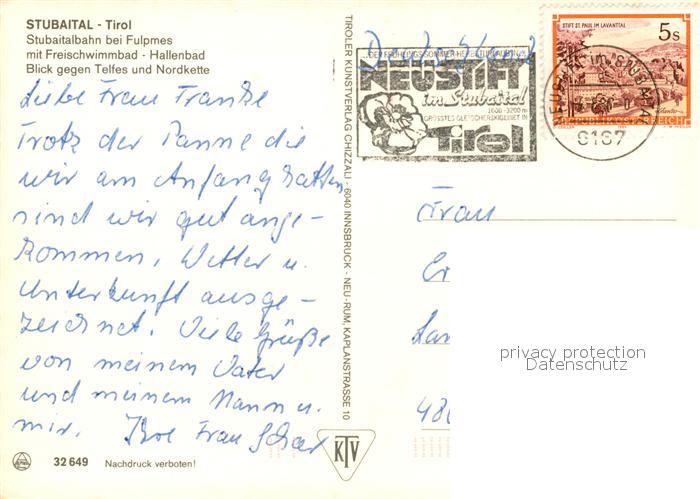 STUBAITAL - Tirol
Stubaitalbahn bei Fulpmes
mit Freischwimmbad - Hallenbad
Blick gegen Telfes und Nordkette
Liebe Frau Franke
Trotz der Panne die
wir am Anfang hatten
sind wir gut ange-
kommen, Wetter u.
Unterkunft ausge-
zeichnet. Viele Grüße
von meinem Vater
und meinem Mann u.
mir. Ihre Frau
32 649 Nachdruck verboten!
TIROLER KUNSTVERLAG CHIZZALI - 6040 INNSBRUCK - NEU-RUM, KAPLANSTRASSE 10
KTV
NEUSTIFT
im Stubaital
1000-3200 m
GRÖSSTES GLETSCHERSKIGEBIET IN
Tirol
STIFT ST. PAUL IM LAVANTTAL
5s
REPUBLIK ÖSTERREICH
NEUSTIFT IM STUBAITAL
6167
Frau
privacy protection
Datenschutz